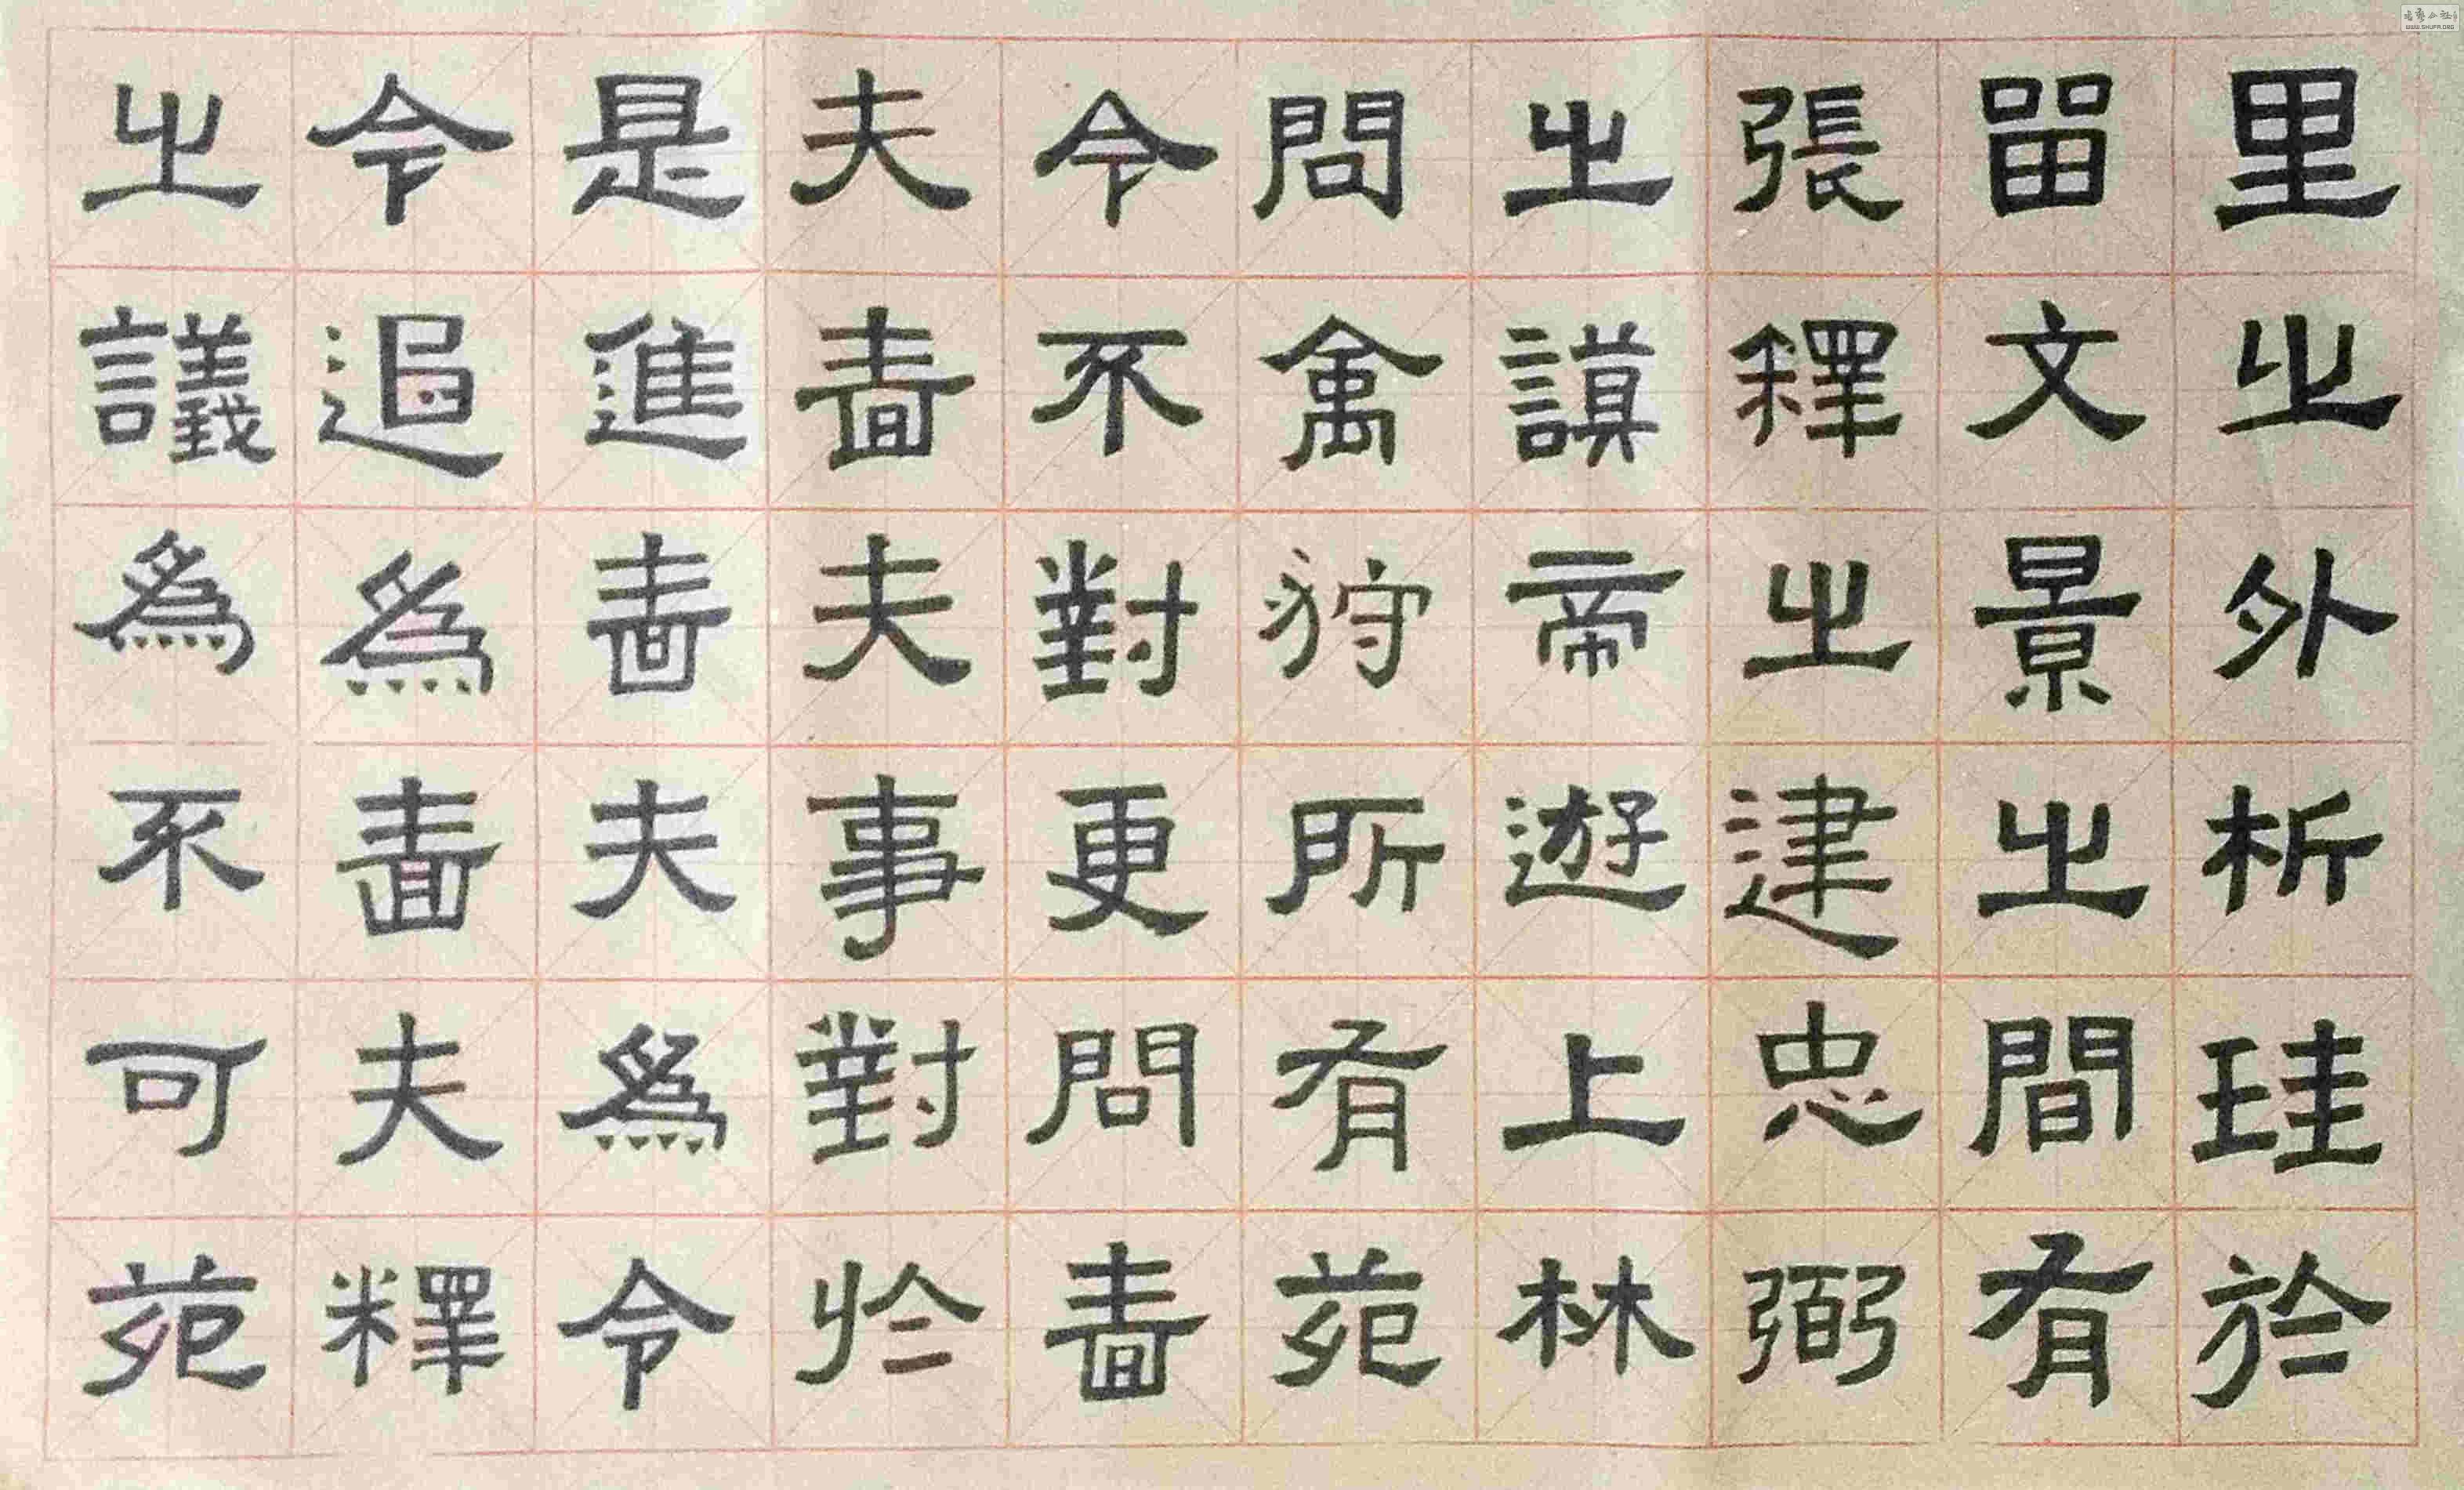 里之外析珪於
留文景之間有
張釋之建忠弼
之謨帝遊上林
問禽狩所有苑
令不對更問嗇
夫嗇夫事對於
是進嗇夫爲令
令退爲嗇夫釋
之議爲不可苑
WWW.SHUFA.ORG